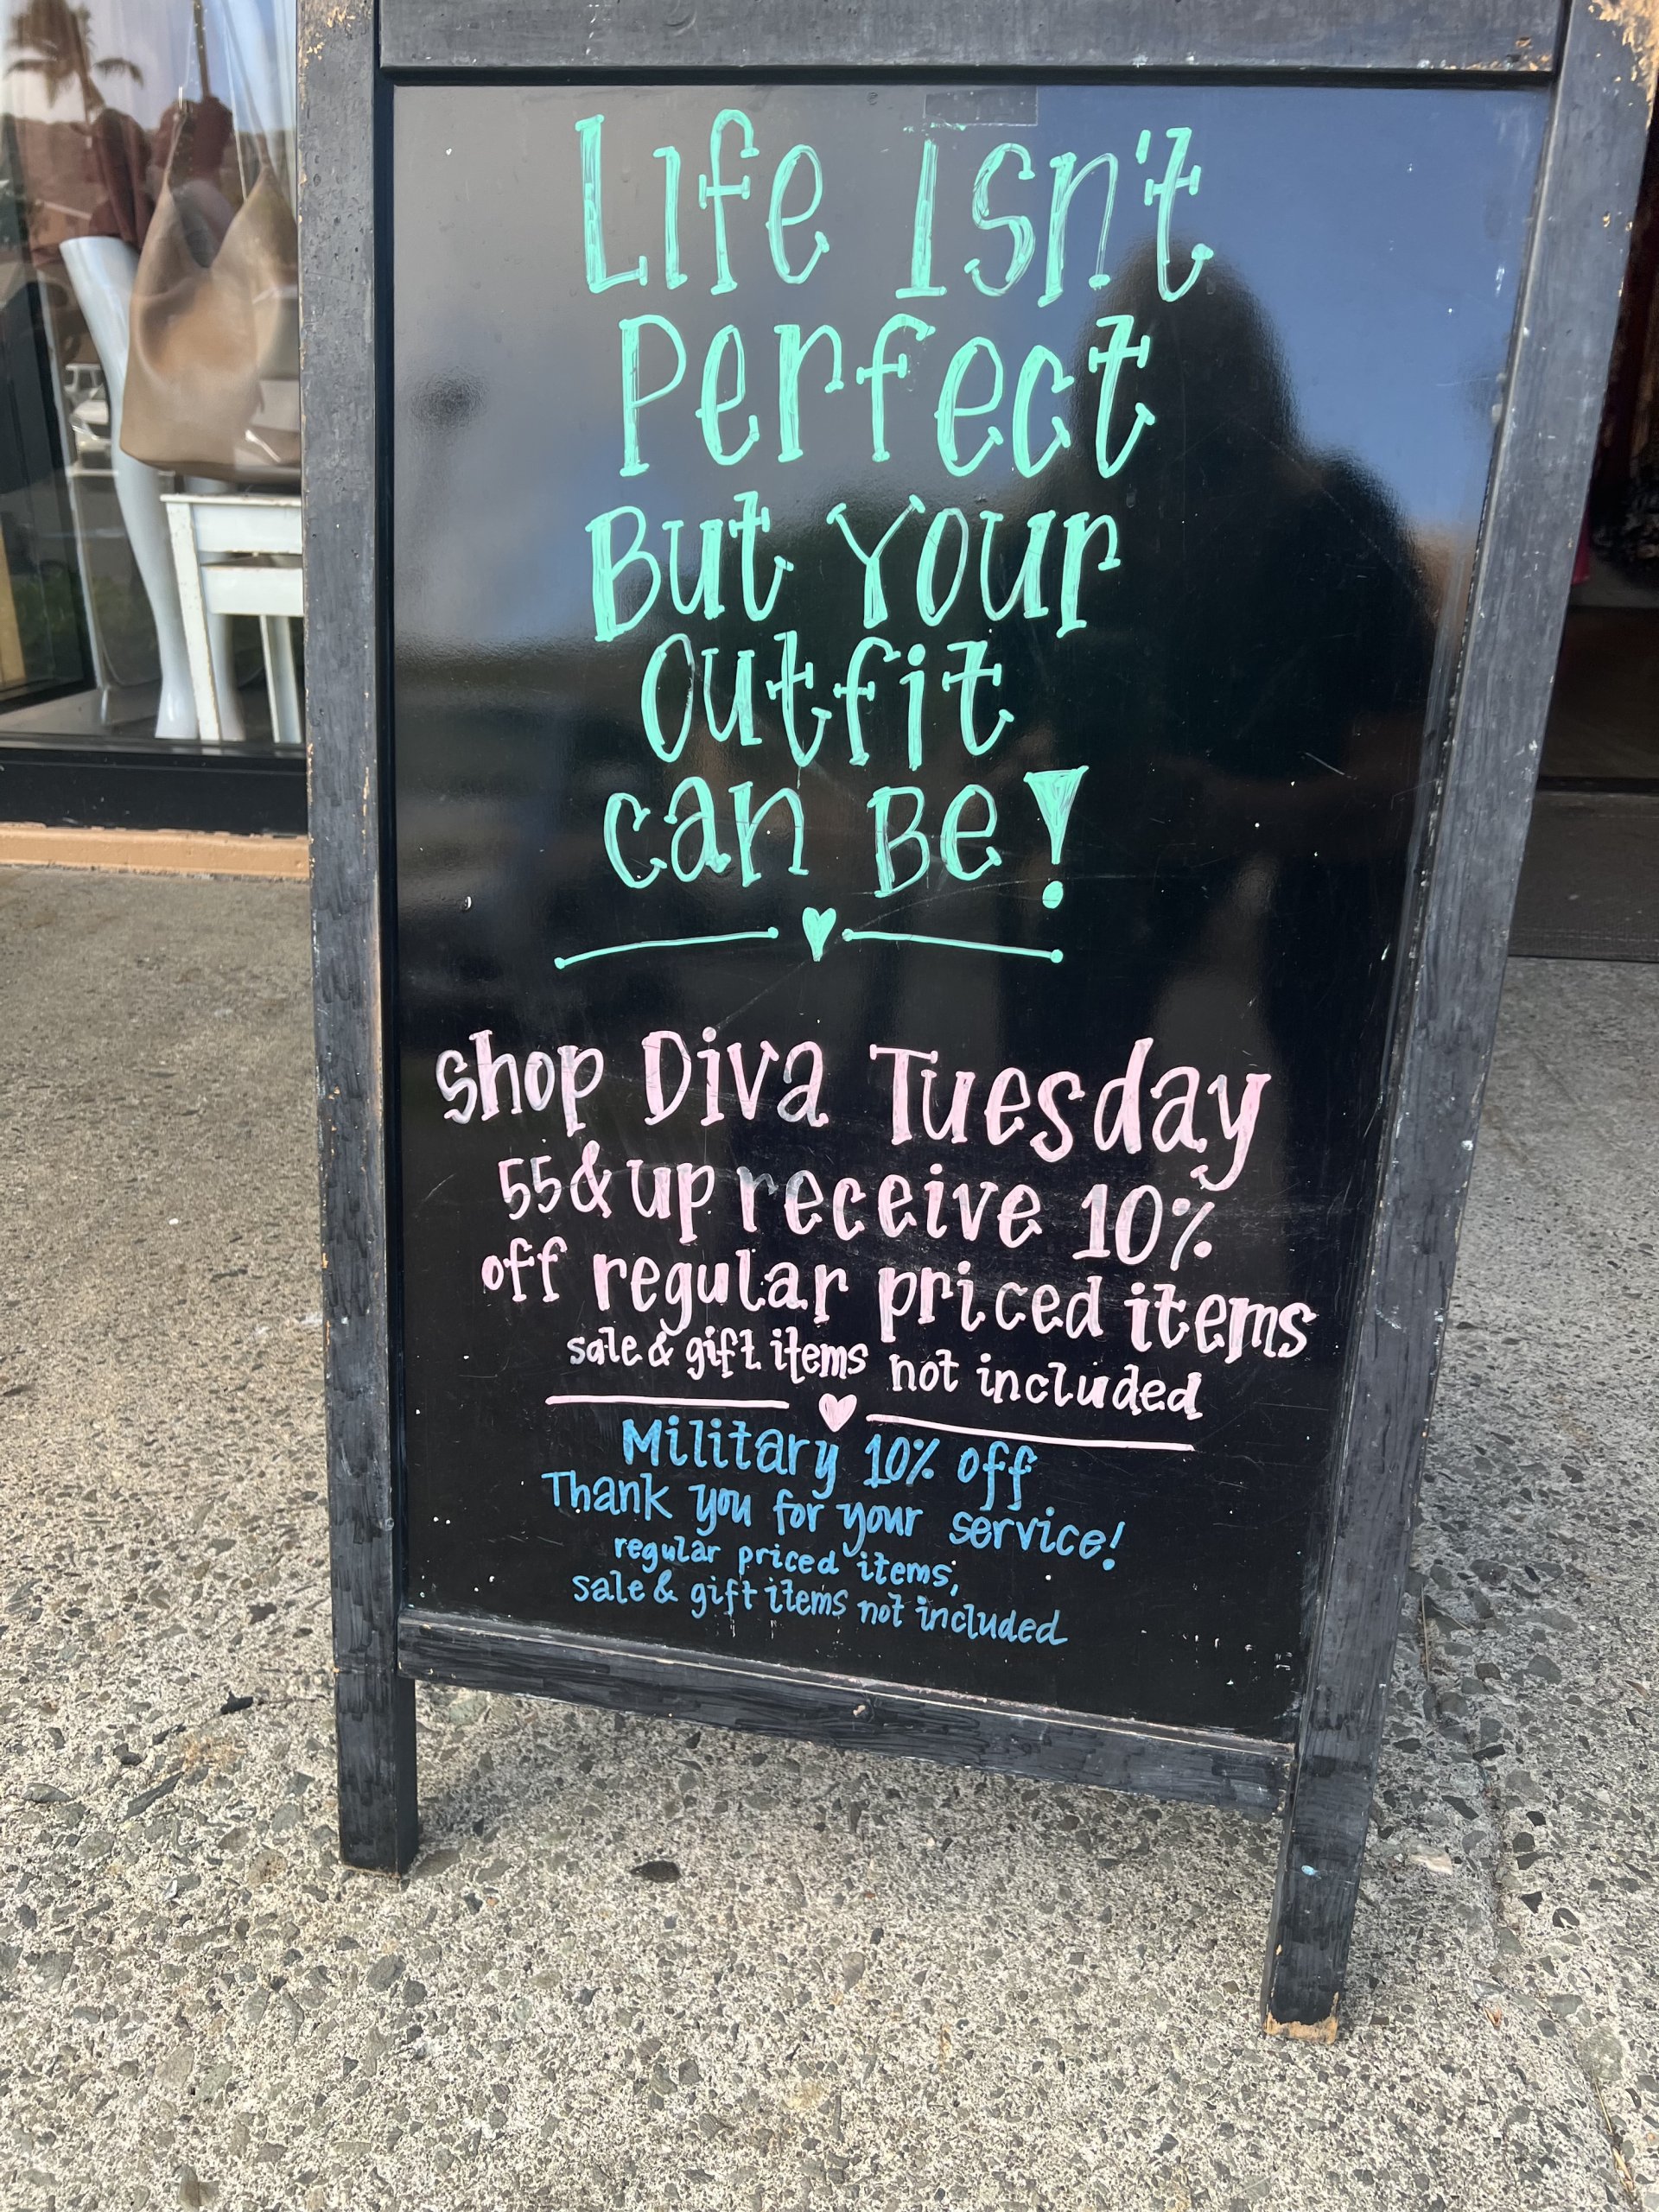 Life Isn't
Perfect
But Your
Outfit
can Be!
shop Diva Tuesday
55 & up receive 10%
off regular priced items
sale & gift items not included
Military 10% off
Thank you for your service!
regular priced items,
sale & gift items not included